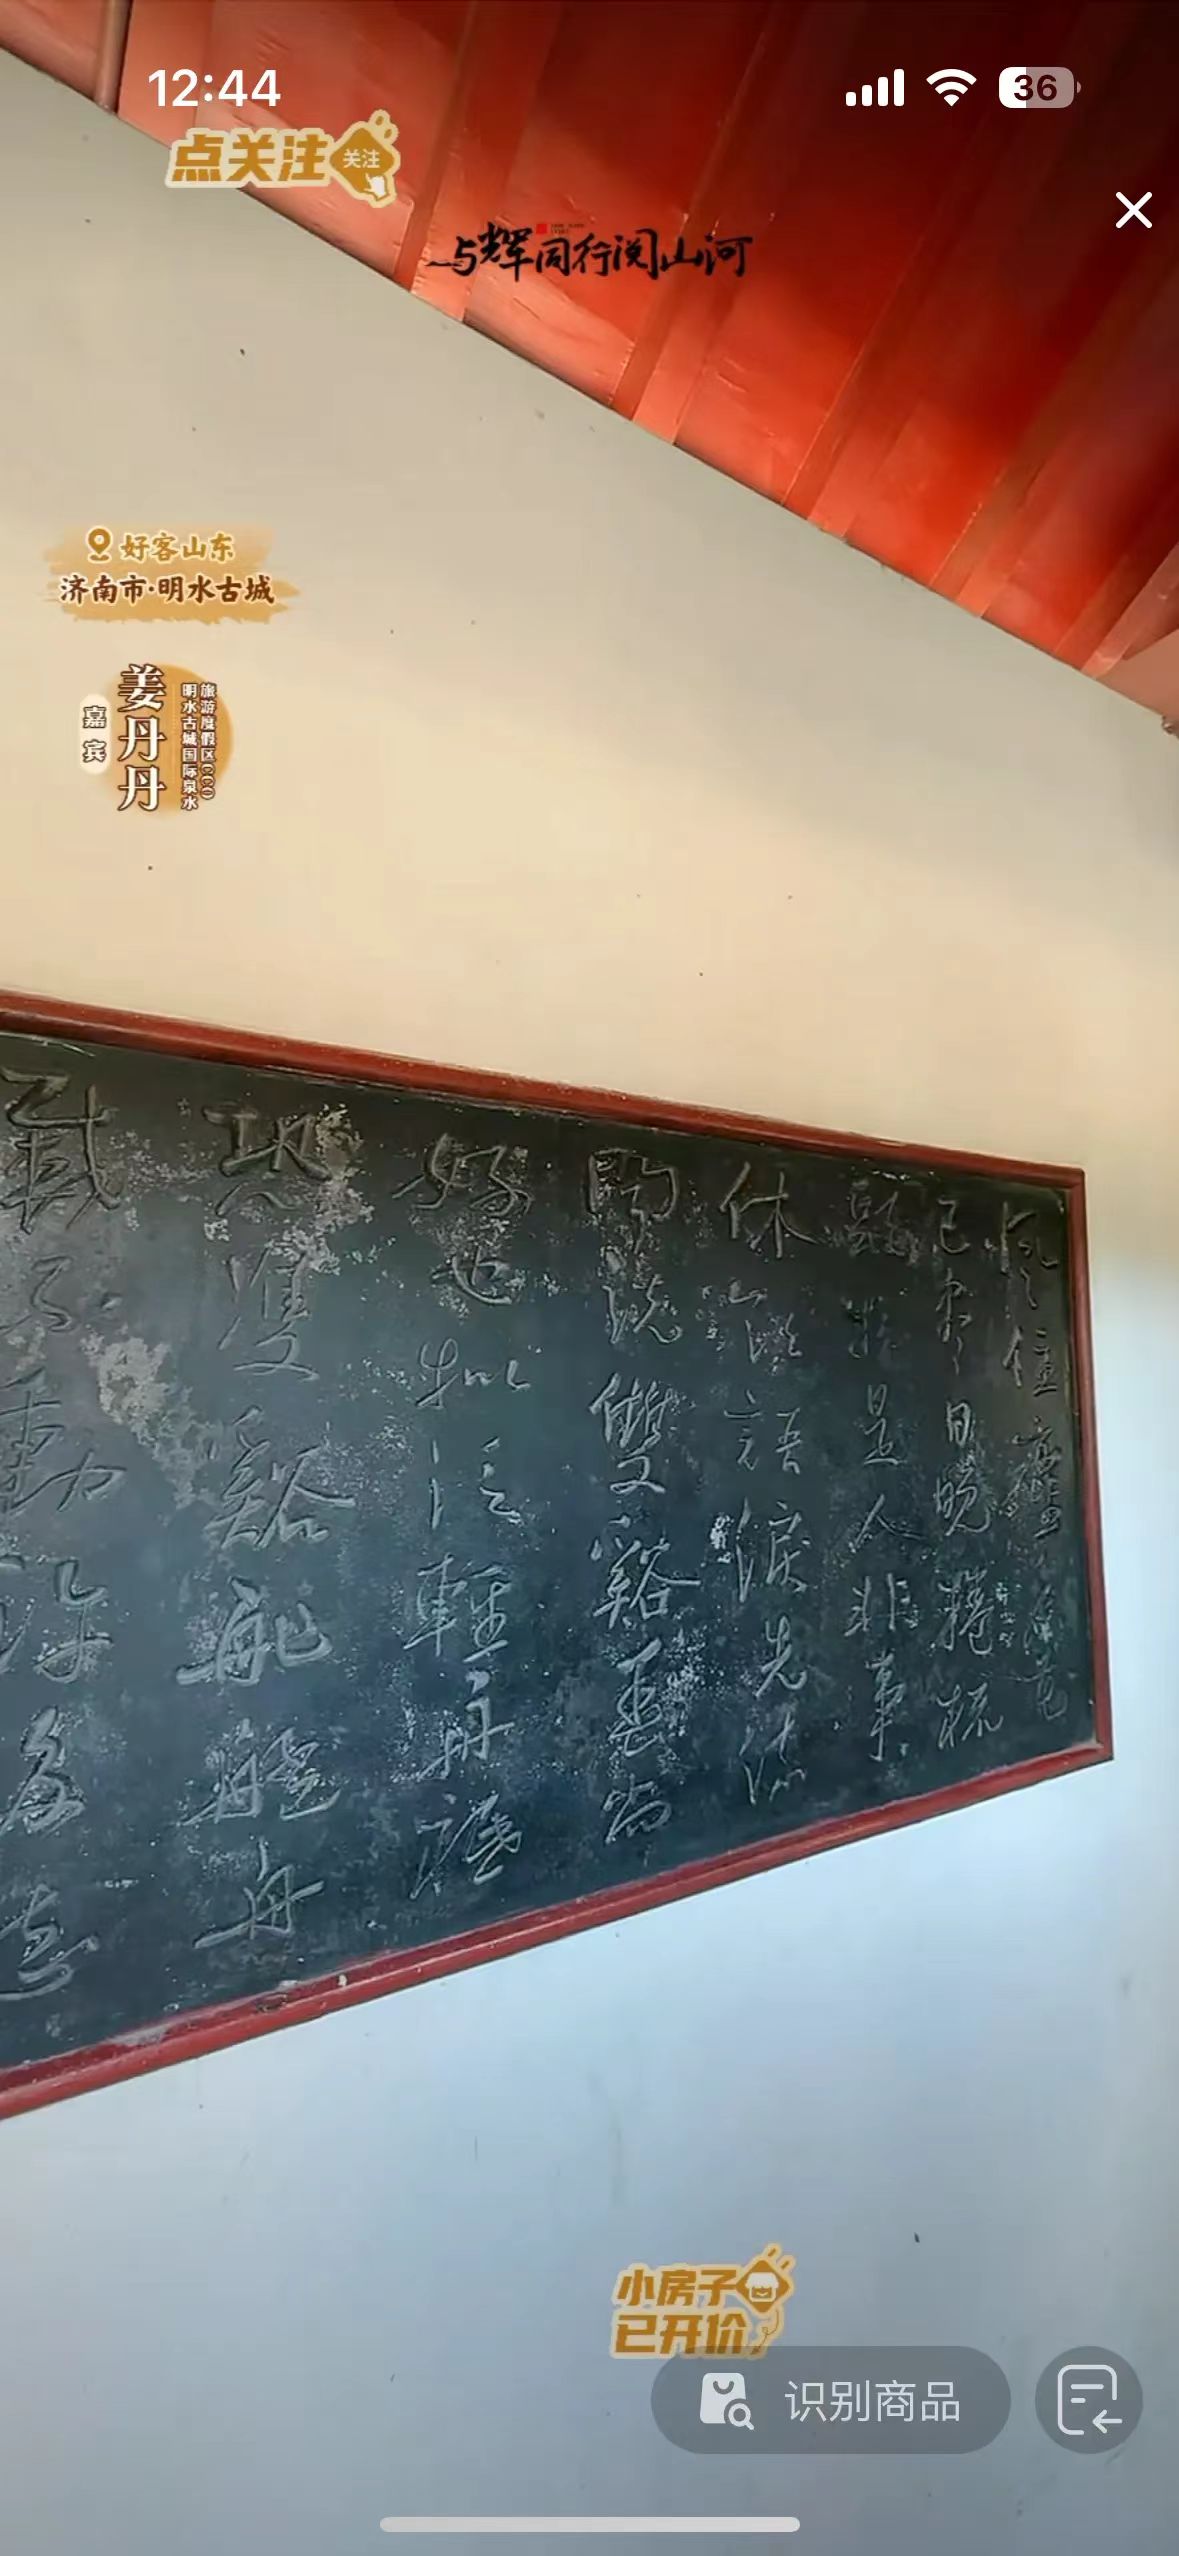 12:44
36
点关注
关注
与辉同行阅山河
好客山东
济南市·明水古城
姜丹丹
嘉宾
明水古城国际泉水
旅游度假区CCO
風住塵香花
已尽日晚倦梳
頭物是人非事
休欲語淚先流
聞説雙谿春尚
好也拟泛輕舟
恐雙谿舴艋舟
載不動許多愁
小房子
已开价
识别商品